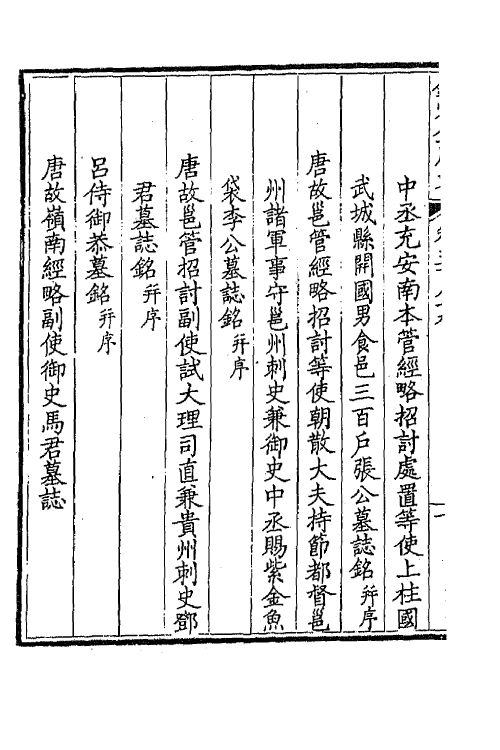 中丞充安南本管經略招討處置等使上柱國
武城縣開國男食邑三百戶張公墓誌銘 并序
唐故邕管經略招討等使朝散大夫持節都督邕
州諸軍事守邕州刺史兼御史中丞賜紫金魚
袋李公墓誌銘 并序
唐故邕管招討副使試大理司直兼貴州刺史鄧
君墓誌銘 并序
呂侍御恭墓銘 并序
唐故嶺南經略副使御史馬君墓誌